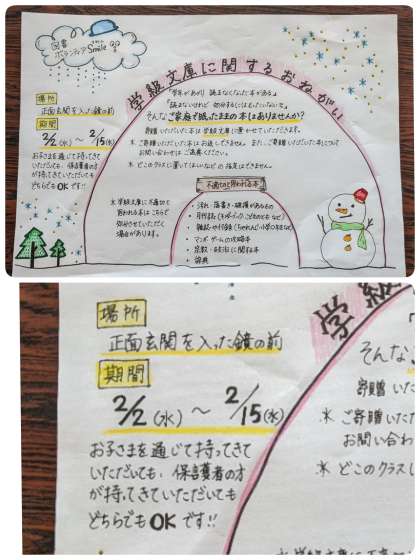 図書
ボランティア Smile
学級文庫に関するおねがい
「学年があがり 読まなくなった本がある」
「読まないけれど 処分するにはもったいない」と
そんなご家庭で眠ったままの本はありませんか?
寄贈いただいた本は学級文庫に置かせていただきます。
※ ご寄贈いただいた本はお返しできません。また、ご寄贈いただいた本について
お問い合わせはご遠慮ください。
※ どこのクラスに置いてほしいなどの指定はできません。
場所
正面玄関を入った鏡の前
期間
2/2(水)〜 2/15(水)
お子さまを通じて持ってきて
いただいても、保護者の方
が持ってきていただいても
どちらでもOKです!!
※ 学級文庫に不適切と
思われる本はこちらで
処分させていただく
場合があります。
不適切と思われる本
・汚れ・落書き・破損があるもの
・マンガ・ゲームの攻略本
・宗教・政治に関する本
・辞典
場所
正面玄関を入った鏡の前
期間
2/2(水)〜 2/15(水)
お子さまを通じて持ってきて
いただいても、保護者の方
が持ってきていただいても
どちらでもOKです!!
学級
そんな
寄贈い
※ ご寄贈いただ
お問い合わ
※ どこのクラスに